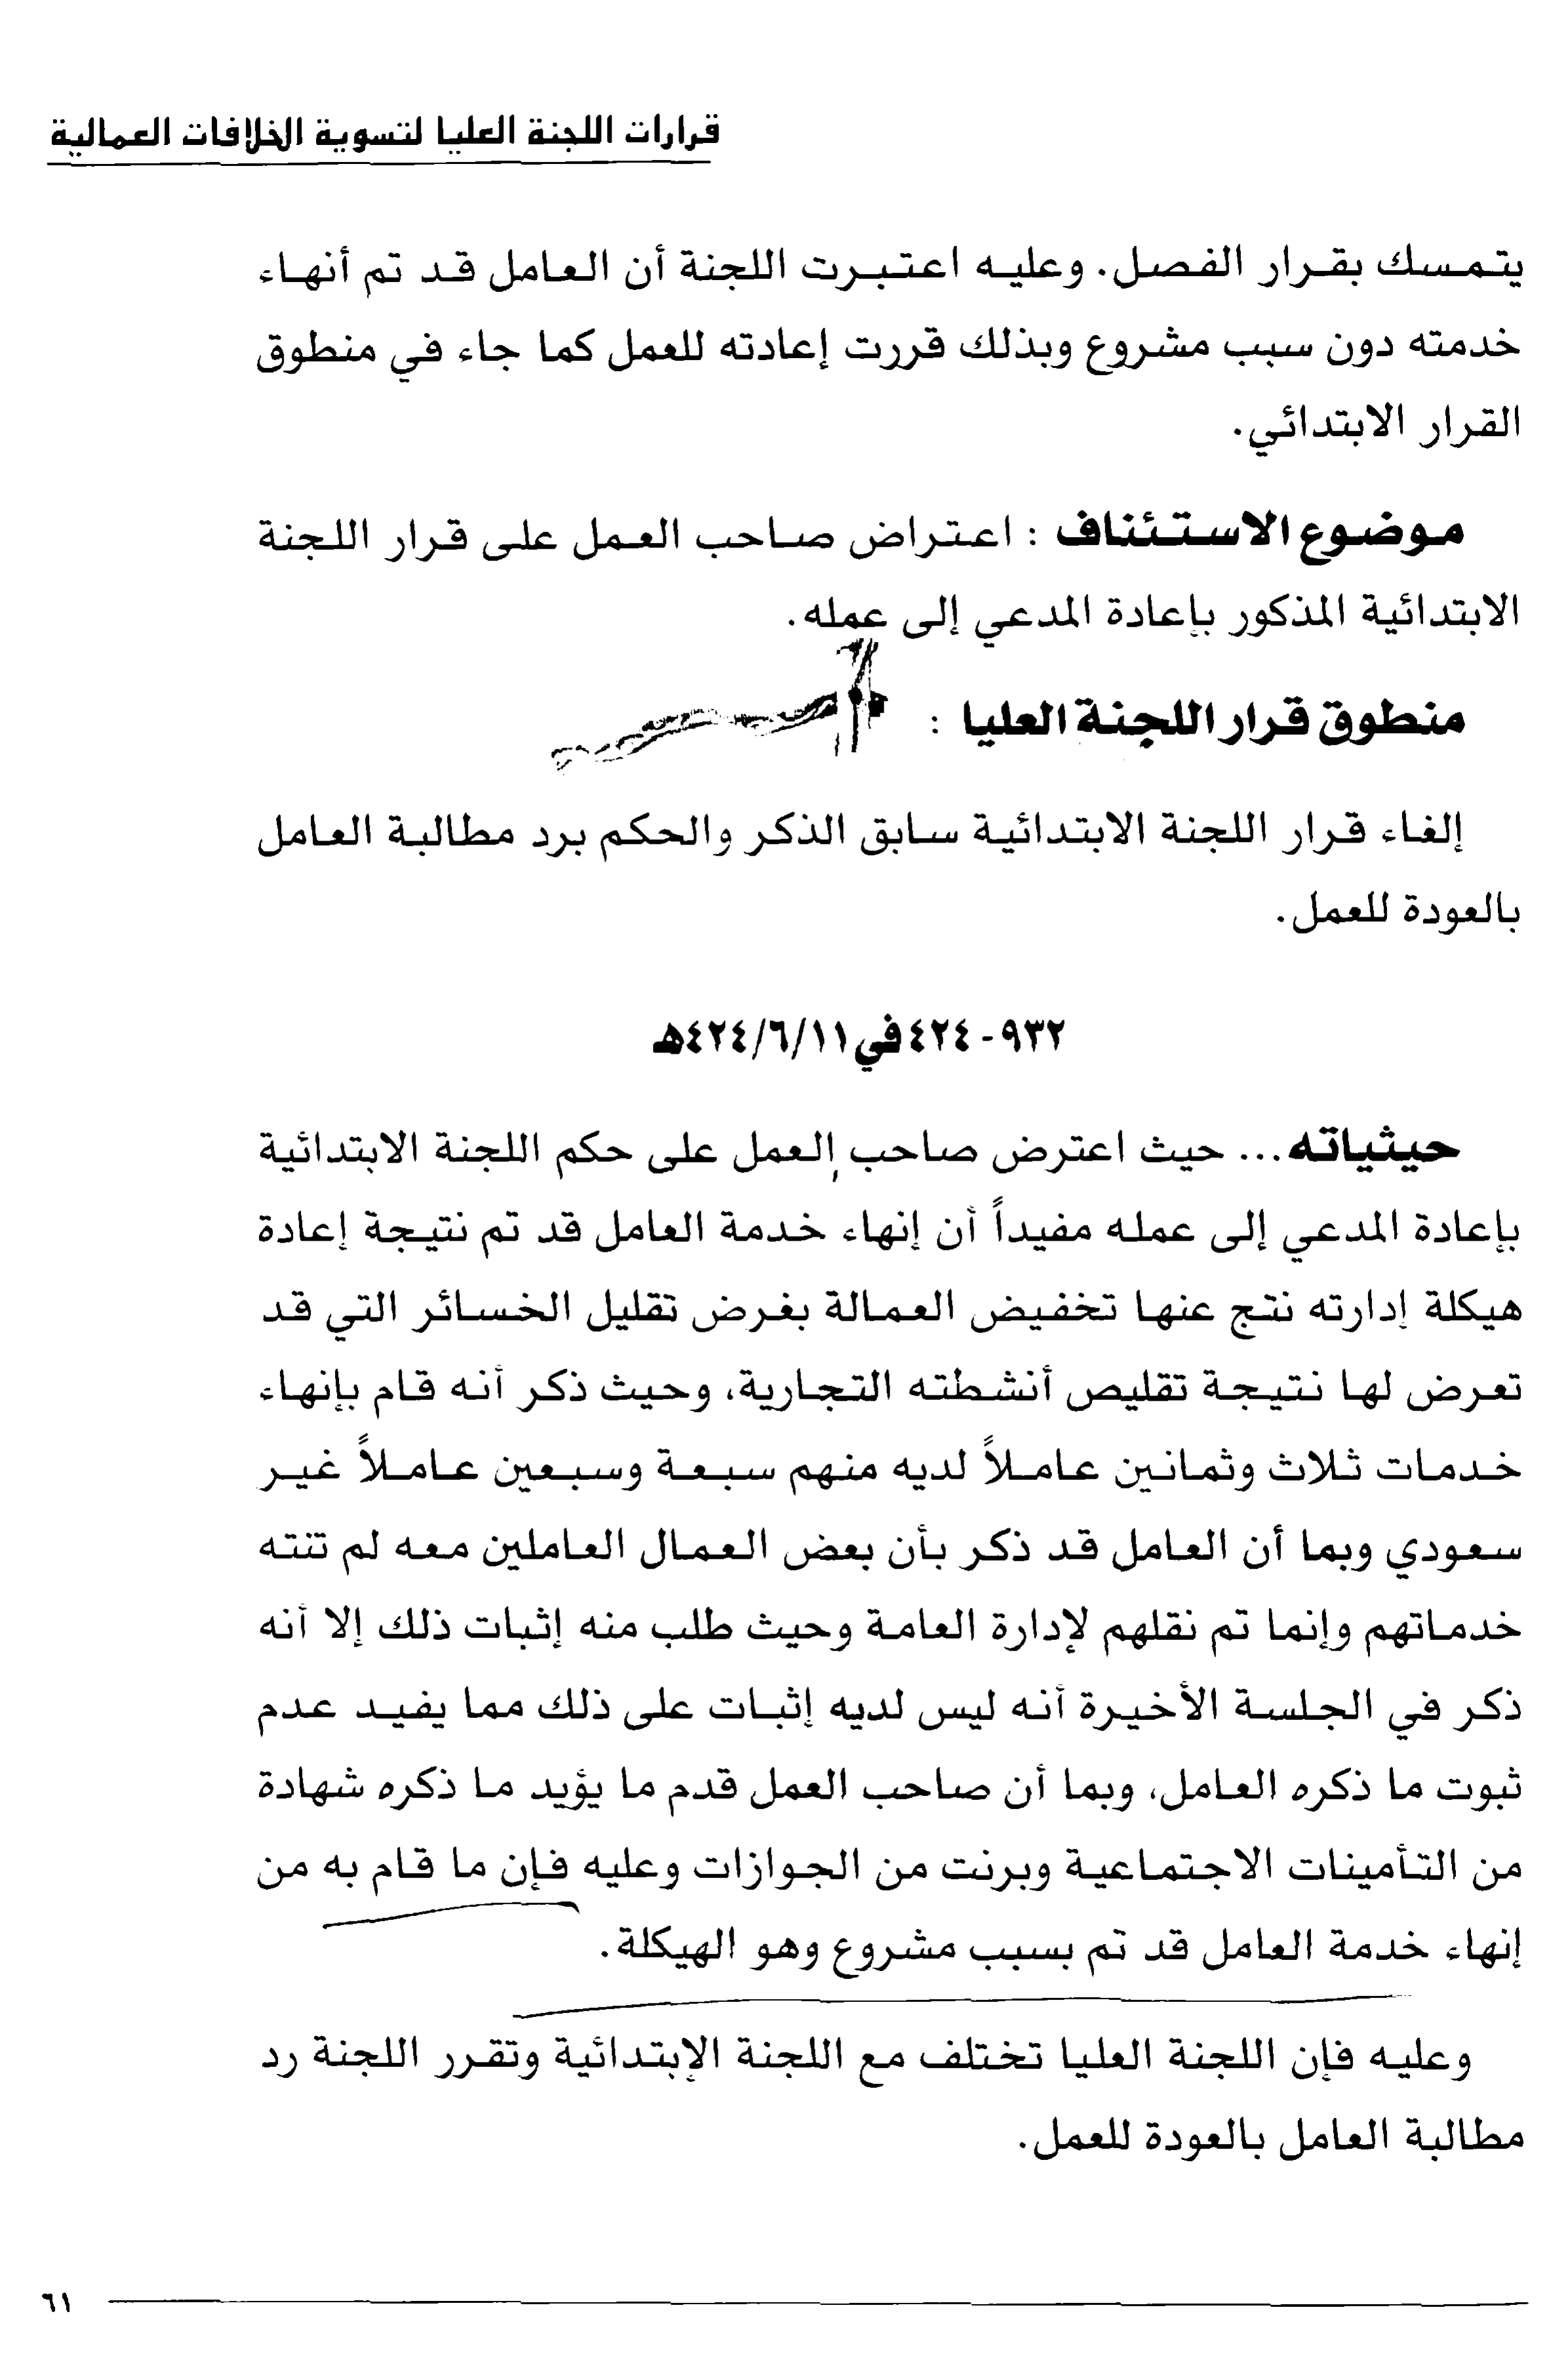 قرارات اللجنة العليا لتسوية الخلافات العمالية
يتمسك بقرار الفصل. وعليه اعتبرت اللجنة أن العامل قد تم أنهاء
خدمته دون سبب مشروع وبذلك قررت إعادته للعمل كما جاء في منطوق
القرار الابتدائي.
موضوع الاستئناف : اعتراض صاحب العمل على قرار اللجنة
الابتدائية المذكور بإعادة المدعي إلى عمله.
منطوق قرار اللجنة العليا :
إلغاء قرار اللجنة الابتدائية سابق الذكر والحكم برد مطالبة العامل
بالعودة للعمل.
٩٣٢-٤٢٤ في ٤٢٤/٦/١١هـ
حيثياته... حيث اعترض صاحب العمل على حكم اللجنة الابتدائية
بإعادة المدعي إلى عمله مفيداً أن إنهاء خدمة العامل قد تم نتيجة إعادة
هيكلة إدارته نتج عنها تخفيض العمالة بغرض تقليل الخسائر التي قد
تعرض لها نتيجة تقليص أنشطته التجارية، وحيث ذكر أنه قام بإنهاء
خدمات ثلاث وثمانين عاملاً لديه منهم سبعة وسبعين عاملاً غير
سعودي وبما أن العامل قد ذكر بأن بعض العمال العاملين معه لم تنته
خدماتهم وإنما تم نقلهم لإدارة العامة وحيث طلب منه إثبات ذلك إلا أنه
ذكر في الجلسة الأخيرة أنه ليس لديه إثبات على ذلك مما يفيد عدم
ثبوت ما ذكره العامل، وبما أن صاحب العمل قدم ما يؤيد ما ذكره شهادة
من التأمينات الاجتماعية وبرنت من الجوازات وعليه فإن ما قام به من
إنهاء خدمة العامل قد تم بسبب مشروع وهو الهيكلة.
وعليه فإن اللجنة العليا تختلف مع اللجنة الإبتدائية وتقرر اللجنة رد
مطالبة العامل بالعودة للعمل.
٦١